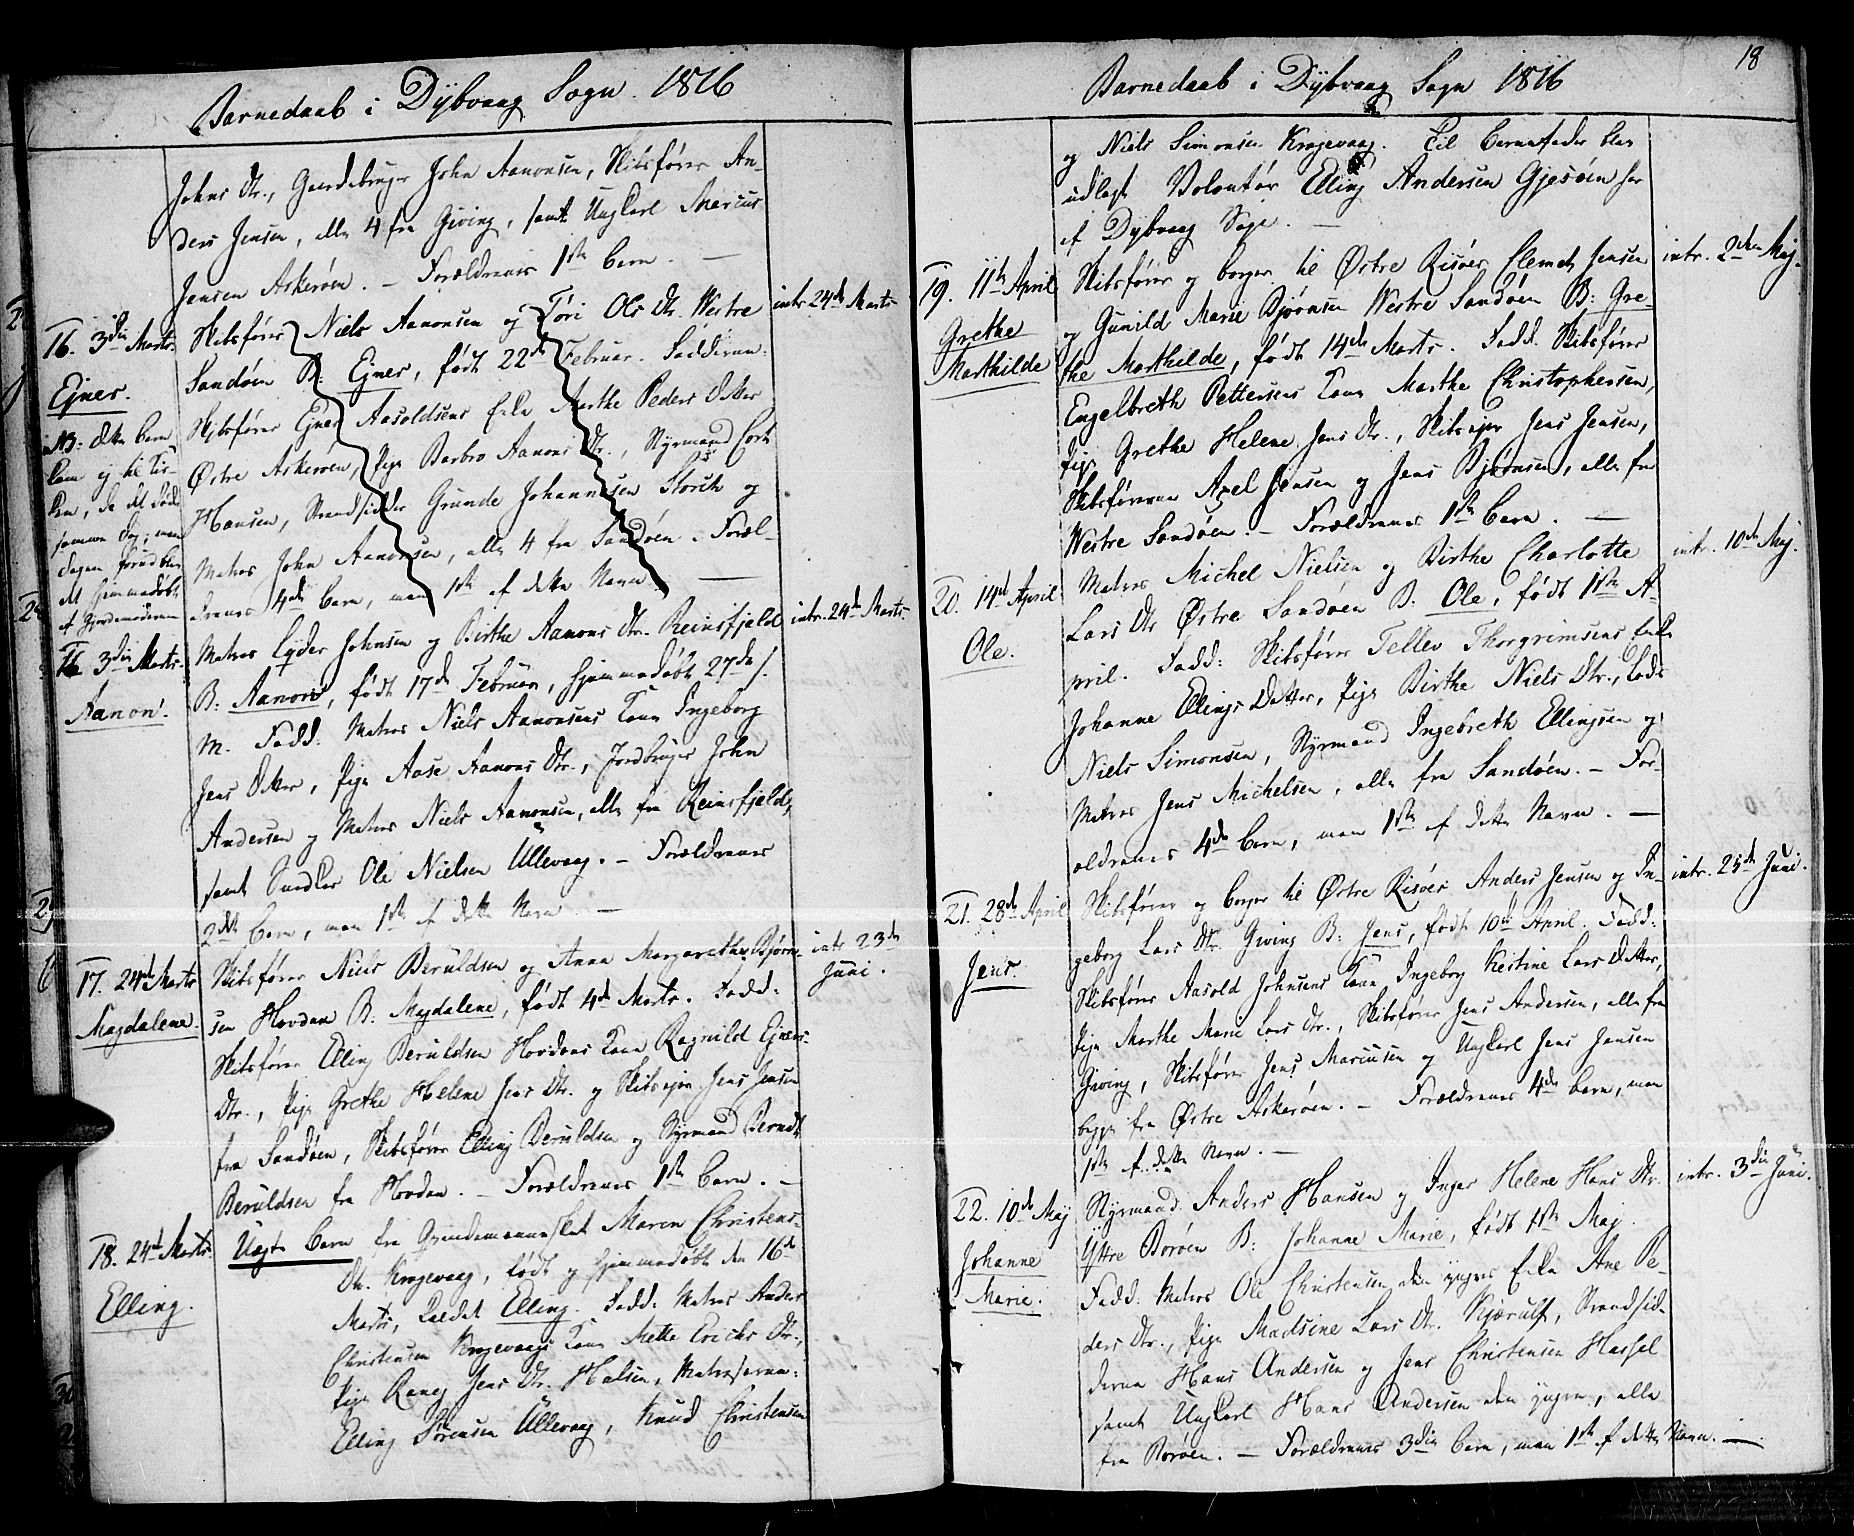 Barnedaab i Dybvaag Sogn. 1816
Johns Dtr., Gaardbruger John Aanonsen, Skibsfører An-
ders Jensen, alle 4 fra Giving, samt Ungkarl Marcus
Jensen Askerøen. – Forældrenes 1ste Barn. –
16. 3die Marts.
Ejner.
NB: dette Barn
kom ej til Kir-
ken, da det døde
samme Dag; men
Dagen forud blev
det hjemmedøbt
af Jordemoderen
Skibsfører Niels Aanonsen og Tøri Ols Dtr. Westre
Sandøen B: Ejner, født 22de Februar. Fadderne:
Skibsfører Ejner Aasoldsens Enke Marthe Peders Datter
Østre Askerøen, Pige Barbro Aanons Dtr., Styrmand Cort
Hansen, Strandsidder Grunde Johannesen Storch og
Matros John Aanonsen, alle 4 fra Sandøen. Foræl-
drenes 4de Barn, men 1ste af dette Navn. –
intr. 24de Marts
16 3die Marts.
Aanon.
Matros Lyder Johnsen og Birthe Aanons Dtr. Reinsfjeld
B: Aanon, født 17de Februar, hjemmedøbt 27de s.
M. Fadd: Matros Niels Aanonsens Kone Ingeborg
Jens Datter, Pige Aase Aanons Dtr., Jordbruger John
Andersen og Matros Niels Aanonsen, alle fra Reinsfjeld,
samt Snedker Ole Nielsen Ullevaag. – Forældrenes
2det Barn, men 1ste af dette Navn –
intr. 24de Marts.
17. 24de Marts
Magdalene.
Skibsfører Niels Beruldsen og Anna Margarethe Bjørn-
sen Hovdan B: Magdalene, født 4de Marts. Fadd:
Skibsfører Elling Beruldsen Hovdans Kone Ragnild Ejners-
Dtr., Pige Grethe Helene Jens Dtr. og Skibsejer Jens Jensen
fra Sandøen, Skibsfører Elling Beruldsen og Styrmand Berndt
Beruldsen fra Hovdan. – Forældrenes 1ste Barn. –
intr. 23de
Juni.
18. 24de Marts.
Elling.
Uægte Barn fra Qvindemennesket Maren Christens-
Dtr. Krogevaag, født og hjemmedøbt den 16de
Marts, kaldet Elling. Fadd: Matros Anders
Christensen Krogevaags Kone Mette Erichs Dtr.,
Pige Raneg Jens Dtr. Halsen, Matroserne:
Elling Sørensen Ullevaag, Knud Christensen
18
Barnedaab i Dybvaag Sogn 1816
og Niels Simonsen Krogevaag. Til Barnefader blev
udlagt Volontør Elling Andersen Gjesøen her
af Dybvaag Sogn. –
19. 11te April
Grethe
Marthilde
Skibsfører og Borger til Østre Risøer Clemet Jensen
og Gunild Marie Bjørnsen Westre Sandøen B: Gre-
the Marthilde, født 14de Marts. Fadd. Skibsfører
Engelbreth Pettersens Kone Marthe Christophersen,
Pige Grethe Helene Jens Dtr., Skibsejer Jens Jensen,
Skibsførerne Axel Jensen og Jens Bjørnsen, alle fra
Westre Sandøen. – Forældrenes 1ste Barn. –
intr. 2den Maj.
20. 14de April
Ole.
Matros Michel Nielsen og Birthe Charlotte
Lars Dtr. Østre Sandøen B: Ole, født 1ste A-
pril. Fadd: Skibsfører Tellev Thorgrimsens Enke
Johanne Ellings Datter, Pige Birthe Niels Dtr., Lods
Niels Simonsen, Styrmand Ingebreth Ellingsen og
Matros Jens Michelsen, alle fra Sandøen. – For-
ældrenes 4de Barn, men 1ste af dette Navn. –
intr. 10de Maj.
21. 28de April
Jens.
Skibsfører og Borger til Østre Risøer Anders Jensen og In-
geborg Lars Dtr. Giving B: Jens, født 10de April. Fadd:
Skibsfører Aasold Johnsens Kone Ingeborg Kestine Lars Datter,
Pige Marthe Marie Lars Dtr., Skibsfører Jens Andersen, alle fra
Giving, Skibsfører Jens Marcusen og Ungkarl Jens Jensen
begge fra Østre Askerøen. – Forældrenes 4de Barn, men
1ste af dette Navn. –
intr. 23de Juni.
22. 10de Maj
Johanne
Marie.
Styrmand Anders Hansen og Inger Helene Hans Dtr.
Yttre Borøen B: Johanne Marie, født 1ste Maj.
Fadd. Matros Ole Christensen den yngres Enke Ane Pe-
ders Dtr., Pige Madsine Lars Dtr. Kjørulf, Strandsid-
derne Hans Andersen og Jens Christensen Hassel
samt Ungkarl Hans Andersen den yngre, alle
fra Borøen. – Forældrenes 3die Barn, men 1ste af dette Navn. –
intr. 3die Juni.